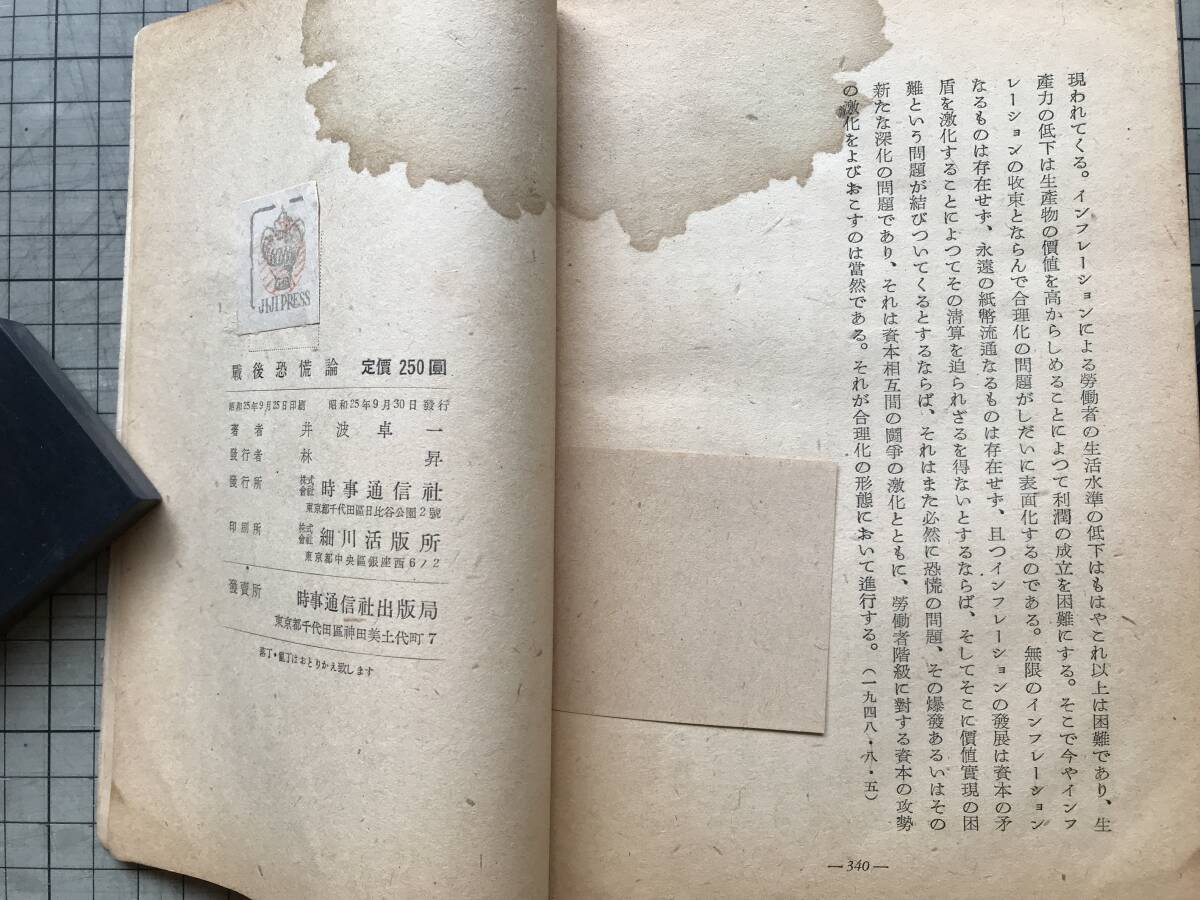 現われてくる。インフレーションによる勞働者の生活水準の低下はもはやこれ以上は困難であり、生
產力の低下は生產物の價値を高からしめることによつて利潤の成立を困難にする。そこで今やインフ
レーションの收束とならんで合理化の問題がしだいに表面化するのである。無限のインフレーション
なるものは存在せず、永遠の紙幣流通なるものは存在せず、且つインフレーションの發展は資本の矛
盾を激化することによつてその淸算を迫られざるを得ないとするならば、そしてそこに價値實現の困
難という問題が結びついてくるとするならば、それはまた必然に恐慌の問題、その爆發あるいはその
新たな深化の問題であり、それは資本相互間の鬪爭の激化とともに、勞働者階級に對する資本の攻勢
の激化をよびおこすのは當然である。それが合理化の形態において進行する。（一九四八・八・五）
—340—
JIJI PRESS
戰後恐慌論 定價 250圓
昭和25年9月25日印刷 昭和25年9月30日發行
著者 井波卓一
發行者 林昇
發行所 株式會社 時事通信社
東京都千代田區日比谷公園2號
印刷所 株式會社 細川活版所
東京都中央區銀座西6ノ2
發賣所 時事通信社出版局
東京都千代田區神田美土代町7
落丁・亂丁はおとりかえ致します